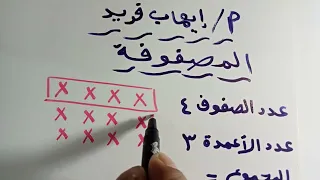 م/ إيهاب فريد
المصفوفة
عدد الصفوف ٤
عدد الأعمدة ٣
x x x x
x x x x
x x x